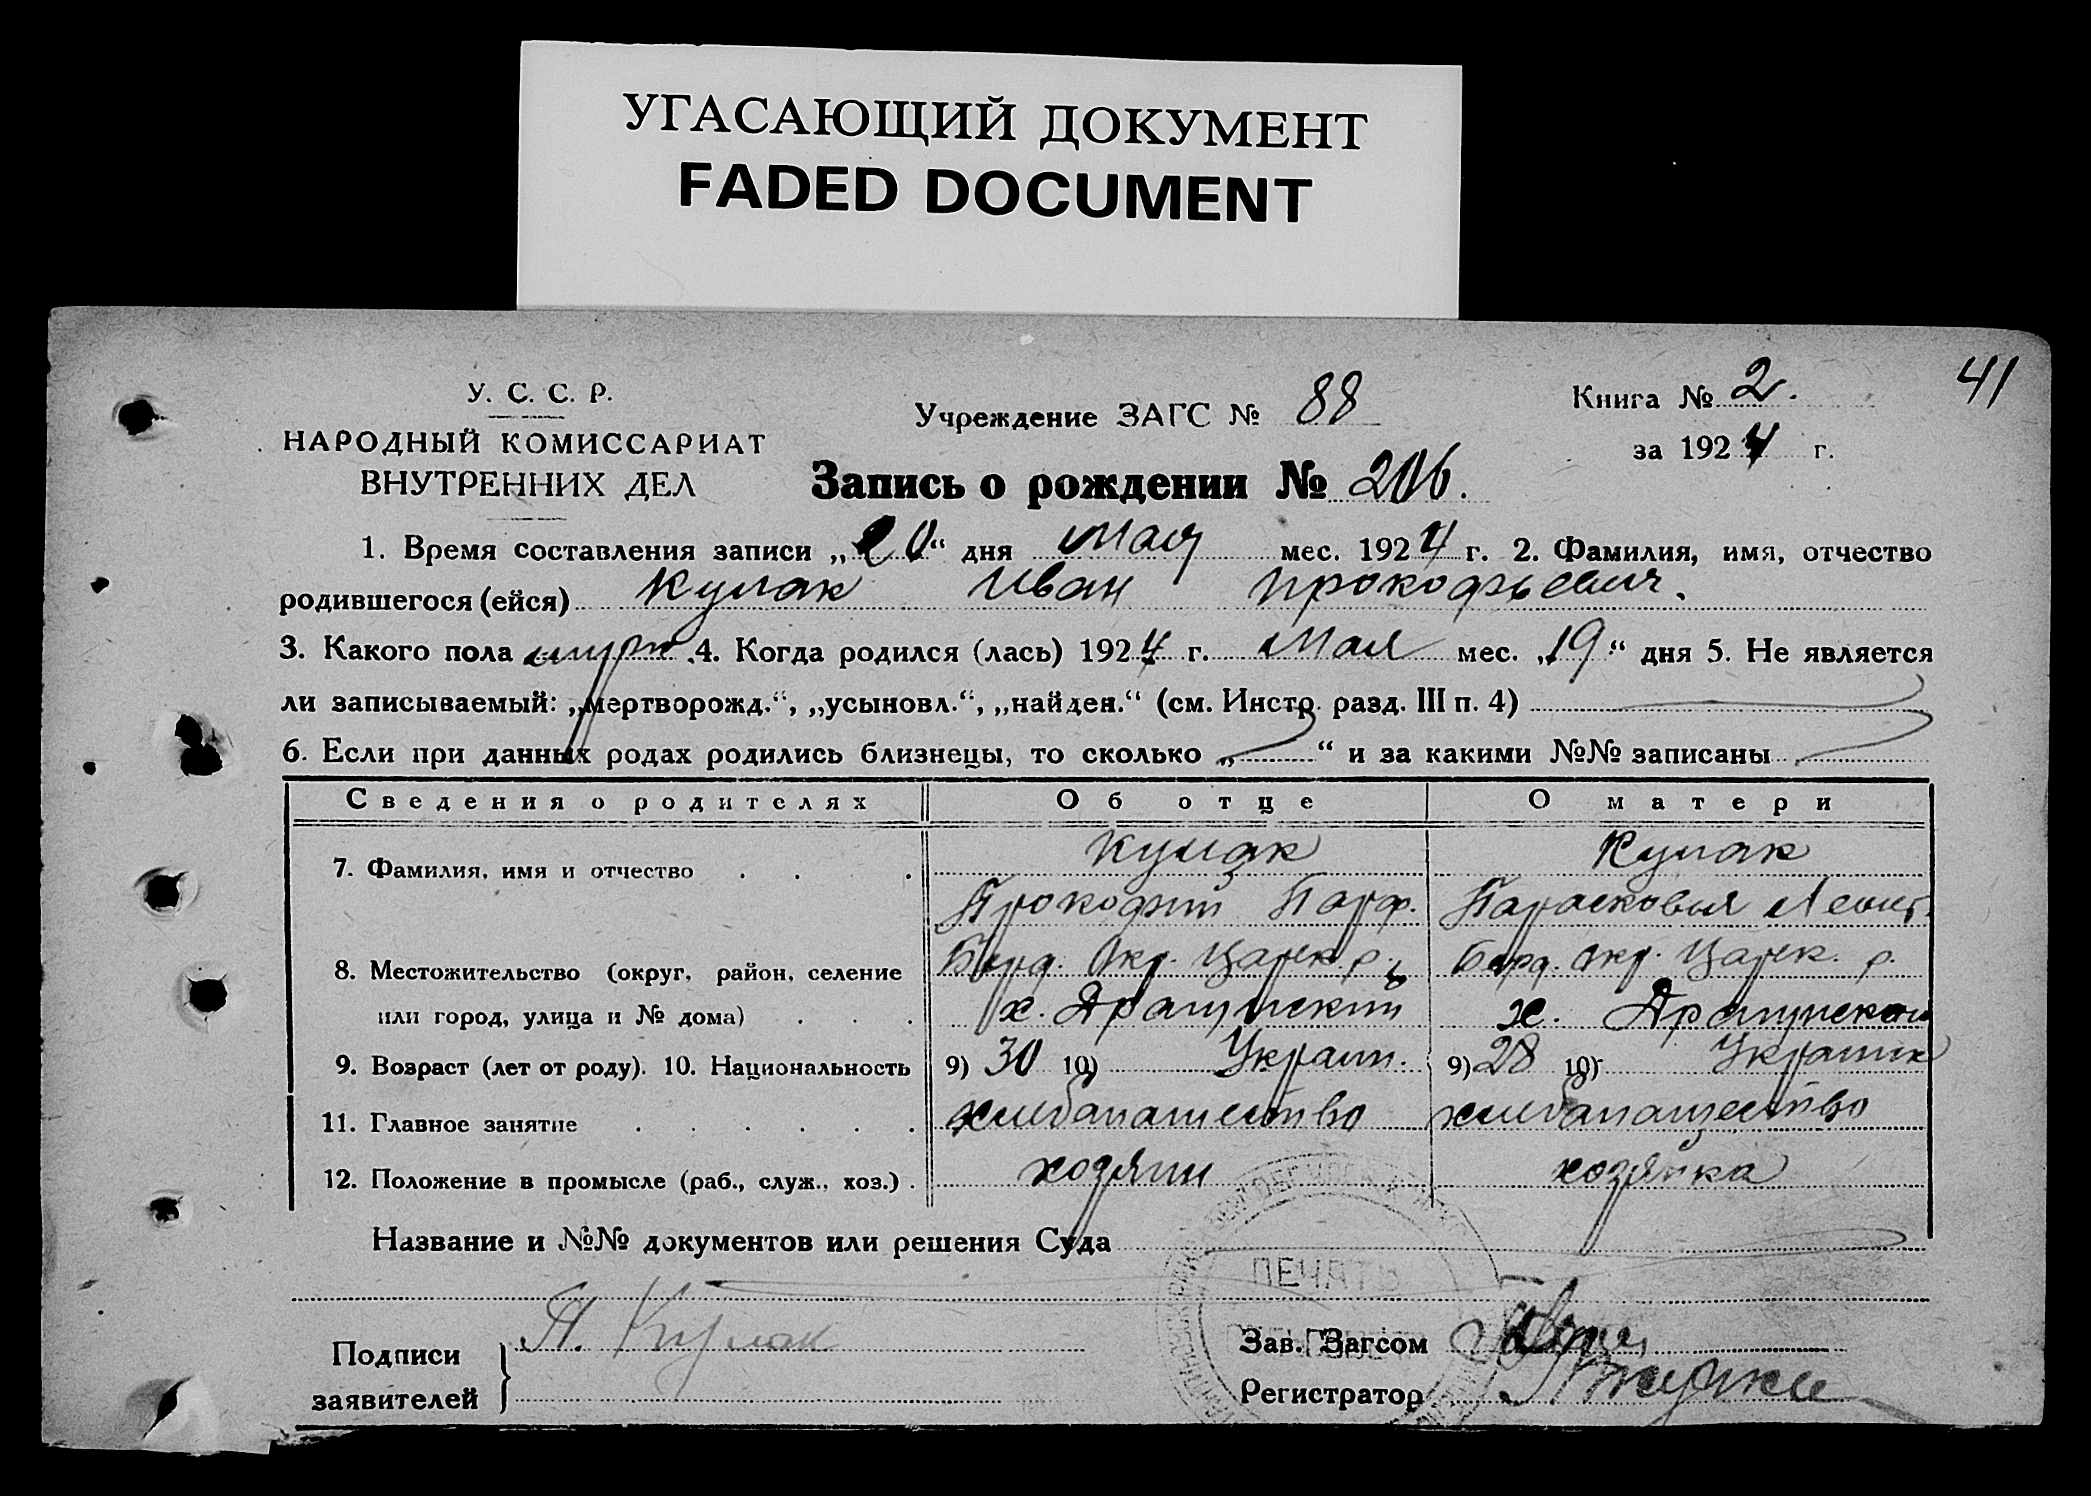 УГАСАЮЩИЙ ДОКУМЕНТ
FADED DOCUMENT
41
У. С. С. Р.
НАРОДНЫЙ КОМИССАРИАТ
ВНУТРЕННИХ ДЕЛ
Учреждение ЗАГС № 88
Книга № 2.
за 1924 г.
Запись о рождении № 206.
1. Время составления записи „20“ дня Мая мес. 1924 г. 2. Фамилия, имя, отчество
родившегося (ейся) Кулак Иван Прокофьевич.
3. Какого пола муж. 4. Когда родился (лась) 1924 г. Мая мес. „19“ дня 5. Не является
ли записываемый: „мертворожд.“, „усыновл.“, „найден.“ (см. Инстр. разд. III п. 4)
6. Если при данных родах родились близнецы, то сколько „ “ и за какими №№ записаны
Сведения о родителях Об отце О матери
7. Фамилия, имя и отчество Кулак Кулак
Прокофий Парф. Парасковья Леонт.
8. Местожительство (округ, район, селение Берд. Окр. Царек. р. Берд. Окр. Царек. р.
или город, улица и № дома) х. х.
9. Возраст (лет от роду). 10. Национальность 9) 30 10) Украин. 9) 28 10) Украинк
11. Главное занятие хлебопашество хлебопашество
12. Положение в промысле (раб., служ., хоз.) хозяин хозяйка
Название и №№ документов или решения Суда
ПЕЧАТЬ
Подписи
заявителей
П. Кулак
Зав. Загсом
Регистратор